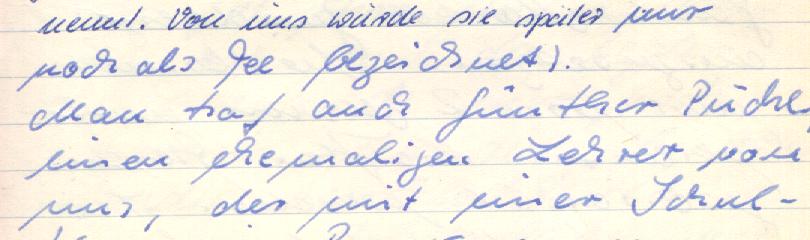 nennt. Von uns wurde sie später nur
noch als Fee bezeichnet).
Man traf auch Günther Püchel
einen ehemaligen Lehrer von
uns, der mit einer Schul-